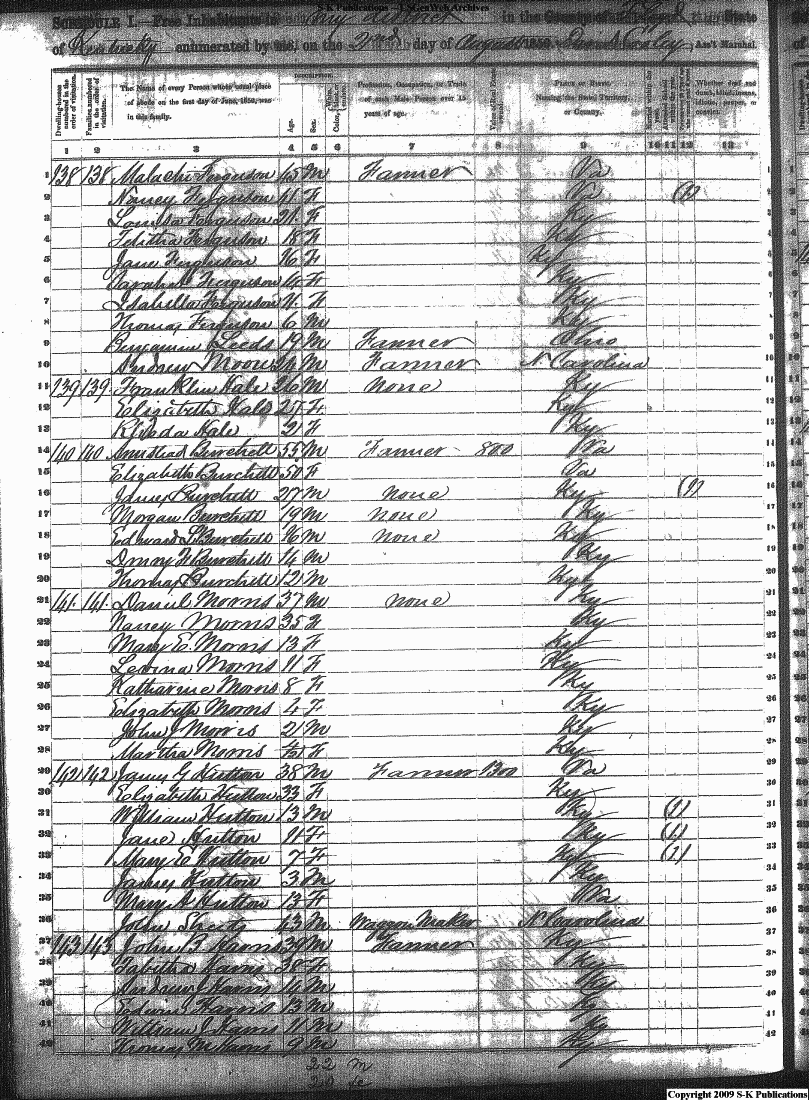 S-K Publications - USGenWeb Archives
SCHEDULE I.—Free Inhabitants in district in the County of State
of Kentucky enumerated by me, on the 2nd day of August 1850. Ass't Marshal.
Dwelling-houses numbered in the order of visitation. Families numbered in the order of visitation. The Name of every Person whose usual place of abode on the first day of June, 1850, was in this family. DESCRIPTION. Age. Sex. Color, Profession, Occupation, or Trade of each Male Person over 15 years of age. Value of Real Estate owned. PLACE OF BIRTH. Naming the State, Territory, or Country. Whether deaf and dumb, blind, insane, idiotic, pauper, or convict.
1 2 3 4 5 6 7 8 9 10 11 12 13
1 138 138 Malachi Ferguson 45 M Farmer Va
2 Nancy Ferguson 41 F Va (1)
3 Louisa Ferguson 21 F Ky
4 Telitha Ferguson 18 F Ky
5 Jane Ferguson 16 F Ky
6 Sarah Ferguson F Ky
7 Isabella Ferguson 11 F Ky
8 Thomas Ferguson 6 M Ky
9 Benjamin Leeds 19 M Farmer Ohio
10 Andrew Moore M Farmer N Carolina
11 139 139 Franklin Hale 26 M None Ky
12 Elizabeth Hale 27 F Ky
13 Hale 2 F Ky
14 140 140 Armstead Burchell 55 M Farmer 800 Va
15 Elizabeth Burchell 50 F Va
16 Burchell 27 M none Ky (1)
17 Morgan Burchell 19 M none Ky
18 Edward S Burchell 16 M none Ky
19 Burchell 14 M Ky
20 Thomas Burchell 12 M Ky
21 141 141 Daniel Morris 37 M none Ky
22 Nancy Morris 35 F Ky
23 Mary E. Morris 13 F Ky
24 Levina Morris 11 F Ky
25 Katharine Morris 8 F Ky
26 Elizabeth Morris 4 F Ky
27 John J Morris 2 M Ky
28 Martha Morris F Ky
29 142 142 James G Hutton 38 M Farmer 1300 Va
30 Elizabeth Hutton 33 F Ky
31 William Hutton 13 M Ky (1)
32 Jane Hutton 11 F Ky (1)
33 Mary E Hutton 7 F Ky (1)
34 James Hutton 3 M Ky
35 Mary A Hutton 13 F Va
36 John Sheets 43 M Waggon Maker N Carolina
37 143 143 John B Harris 39 M Farmer Ky
38 Tabitha Harris 38 F Ky
39 Andrew J Harris M Ky
40 Edwin Harris 13 M Ky
41 William J Harris 11 M Ky
42 Thomas M Harris 9 M Ky
22 m
20 fe
Copyright 2009 S-K Publications